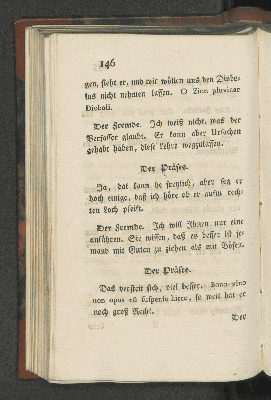 146
gen, siehe er, und wir wollen uns den Diabo-
lus nicht nehmen lassen. O Zion pluvinar
Diaboli.
Der Fremde. Ich weiß nicht, was der
Verfasser glaubt. Er kann aber Ursachen
gehabt haben, diese Lehre wegzulassen.
Der Präses.
Ja, dat kann he freylich, aber seg er
doch einige, daß ich höre ob er aufm rech-
ten Loch pfeift.
Der Fremde. Ich will Ihnen nur eine
anführen. Sie wissen, daß es besser ist je-
mand mit Guten zu ziehen als mit Bösen.
Der Präses.
Das versteit sich, viel besser. Bono vino
non opus est suspenso hedera, so weit hat er
noch groß Recht.
Der